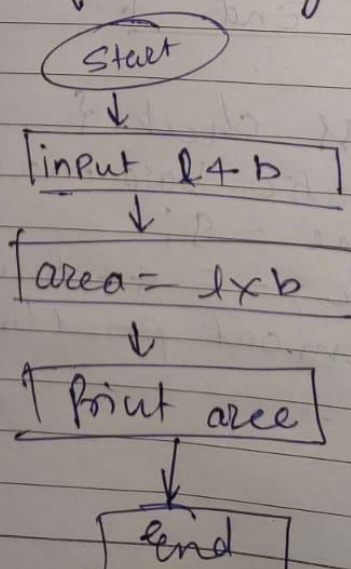 Start
input l & b
area = l×b
Print area
End